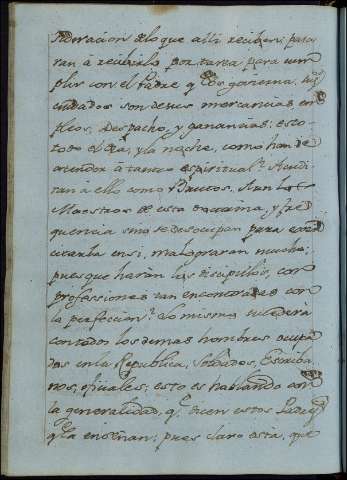 sideracion de lo que alli reciben: para
ran à recibirlo por tarea para cum
plir con el Padre q̃ los govierna, sus
cuidados son de sus mercancias em
pleos, despacho, y ganancias: esto
todo el dia, y la noche, como han de
atender à tanto espiritual? Acudi
ran à ello como Brutos. Aun los
Maestros de esta doctrina, y fre
quencia sino se desocupan para exer
citarla en si, malograran mucho;
pues que harán los discipulos, con
professiones tan encontradas con
la perfeccion? Lo mismo sucederá
con todos los demas hombres ocupa
dos en la Republica, Soldados, Escriba
nos, oficiales; esto es hablando con
la generalidad, q̃ dicen estos Padres
q̃ la enseñan; pues claro està, que